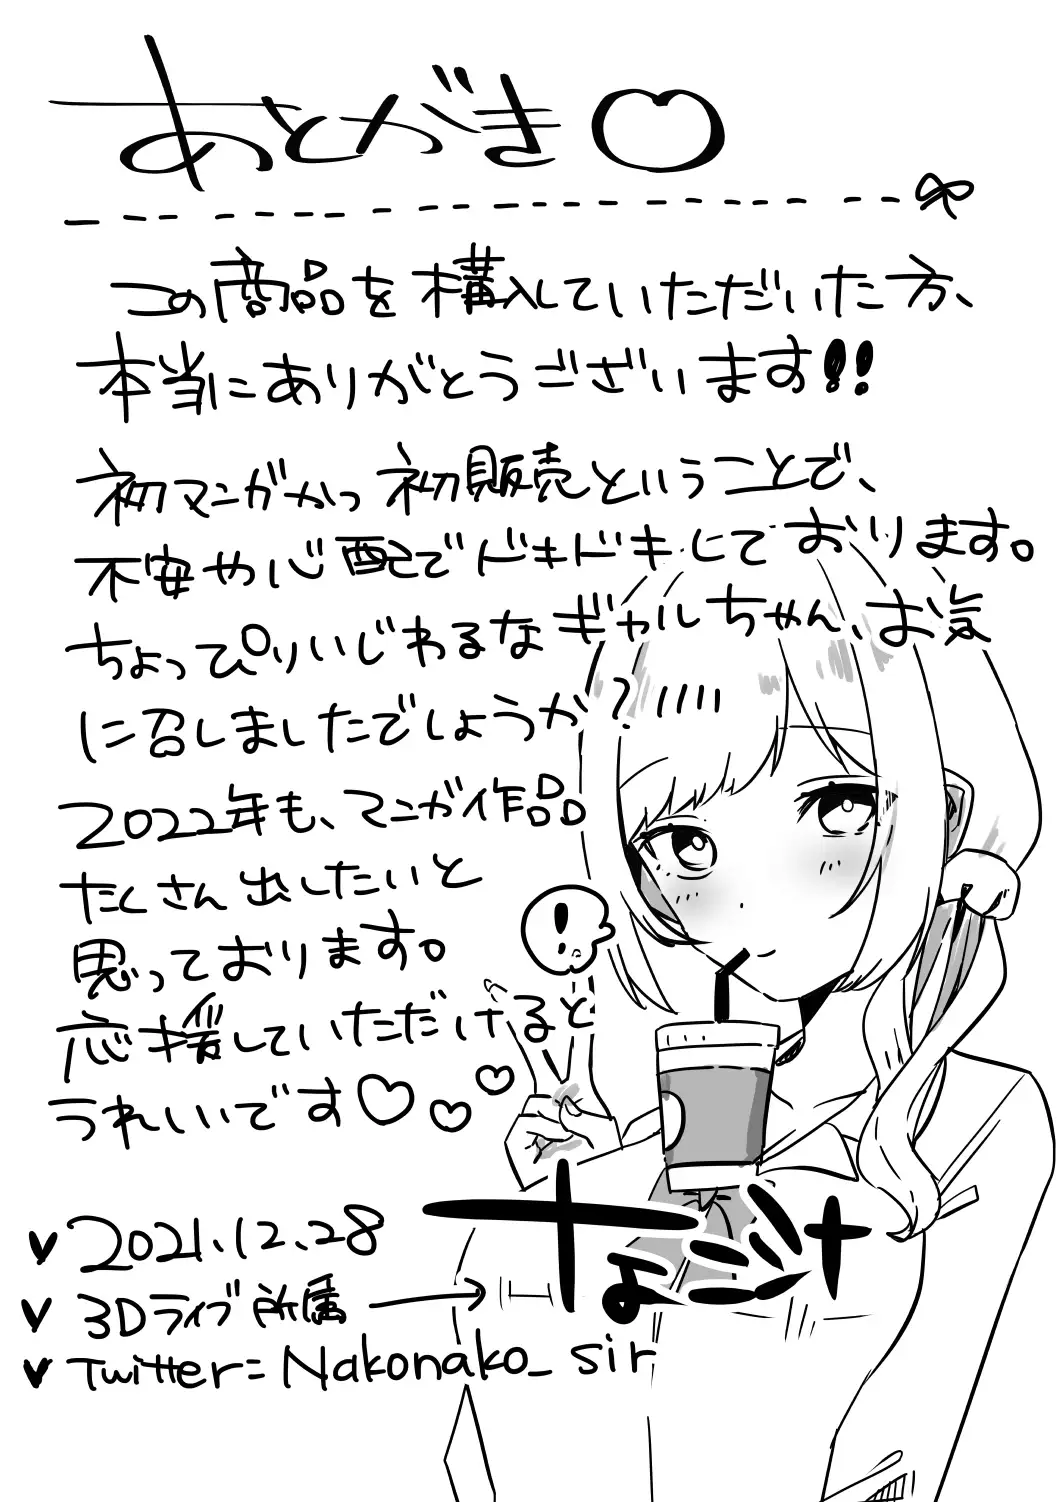 あとがき♡
この商品を構入していただいた方、
本当にありがとうございます!!
初マンガかつ初販売ということで、
不安や心配でドキドキしております。
ちょっぴりいじわるなギャルちゃん、お気
に召しましたでしょうか?
2022年も、マンガ作品
たくさん出したいと
思っております。
応援していただけると
うれしいです♡♡♡
!
♥2021.12.28
♥3Dライブ所属→
♥Twitter=Nakonako_sir